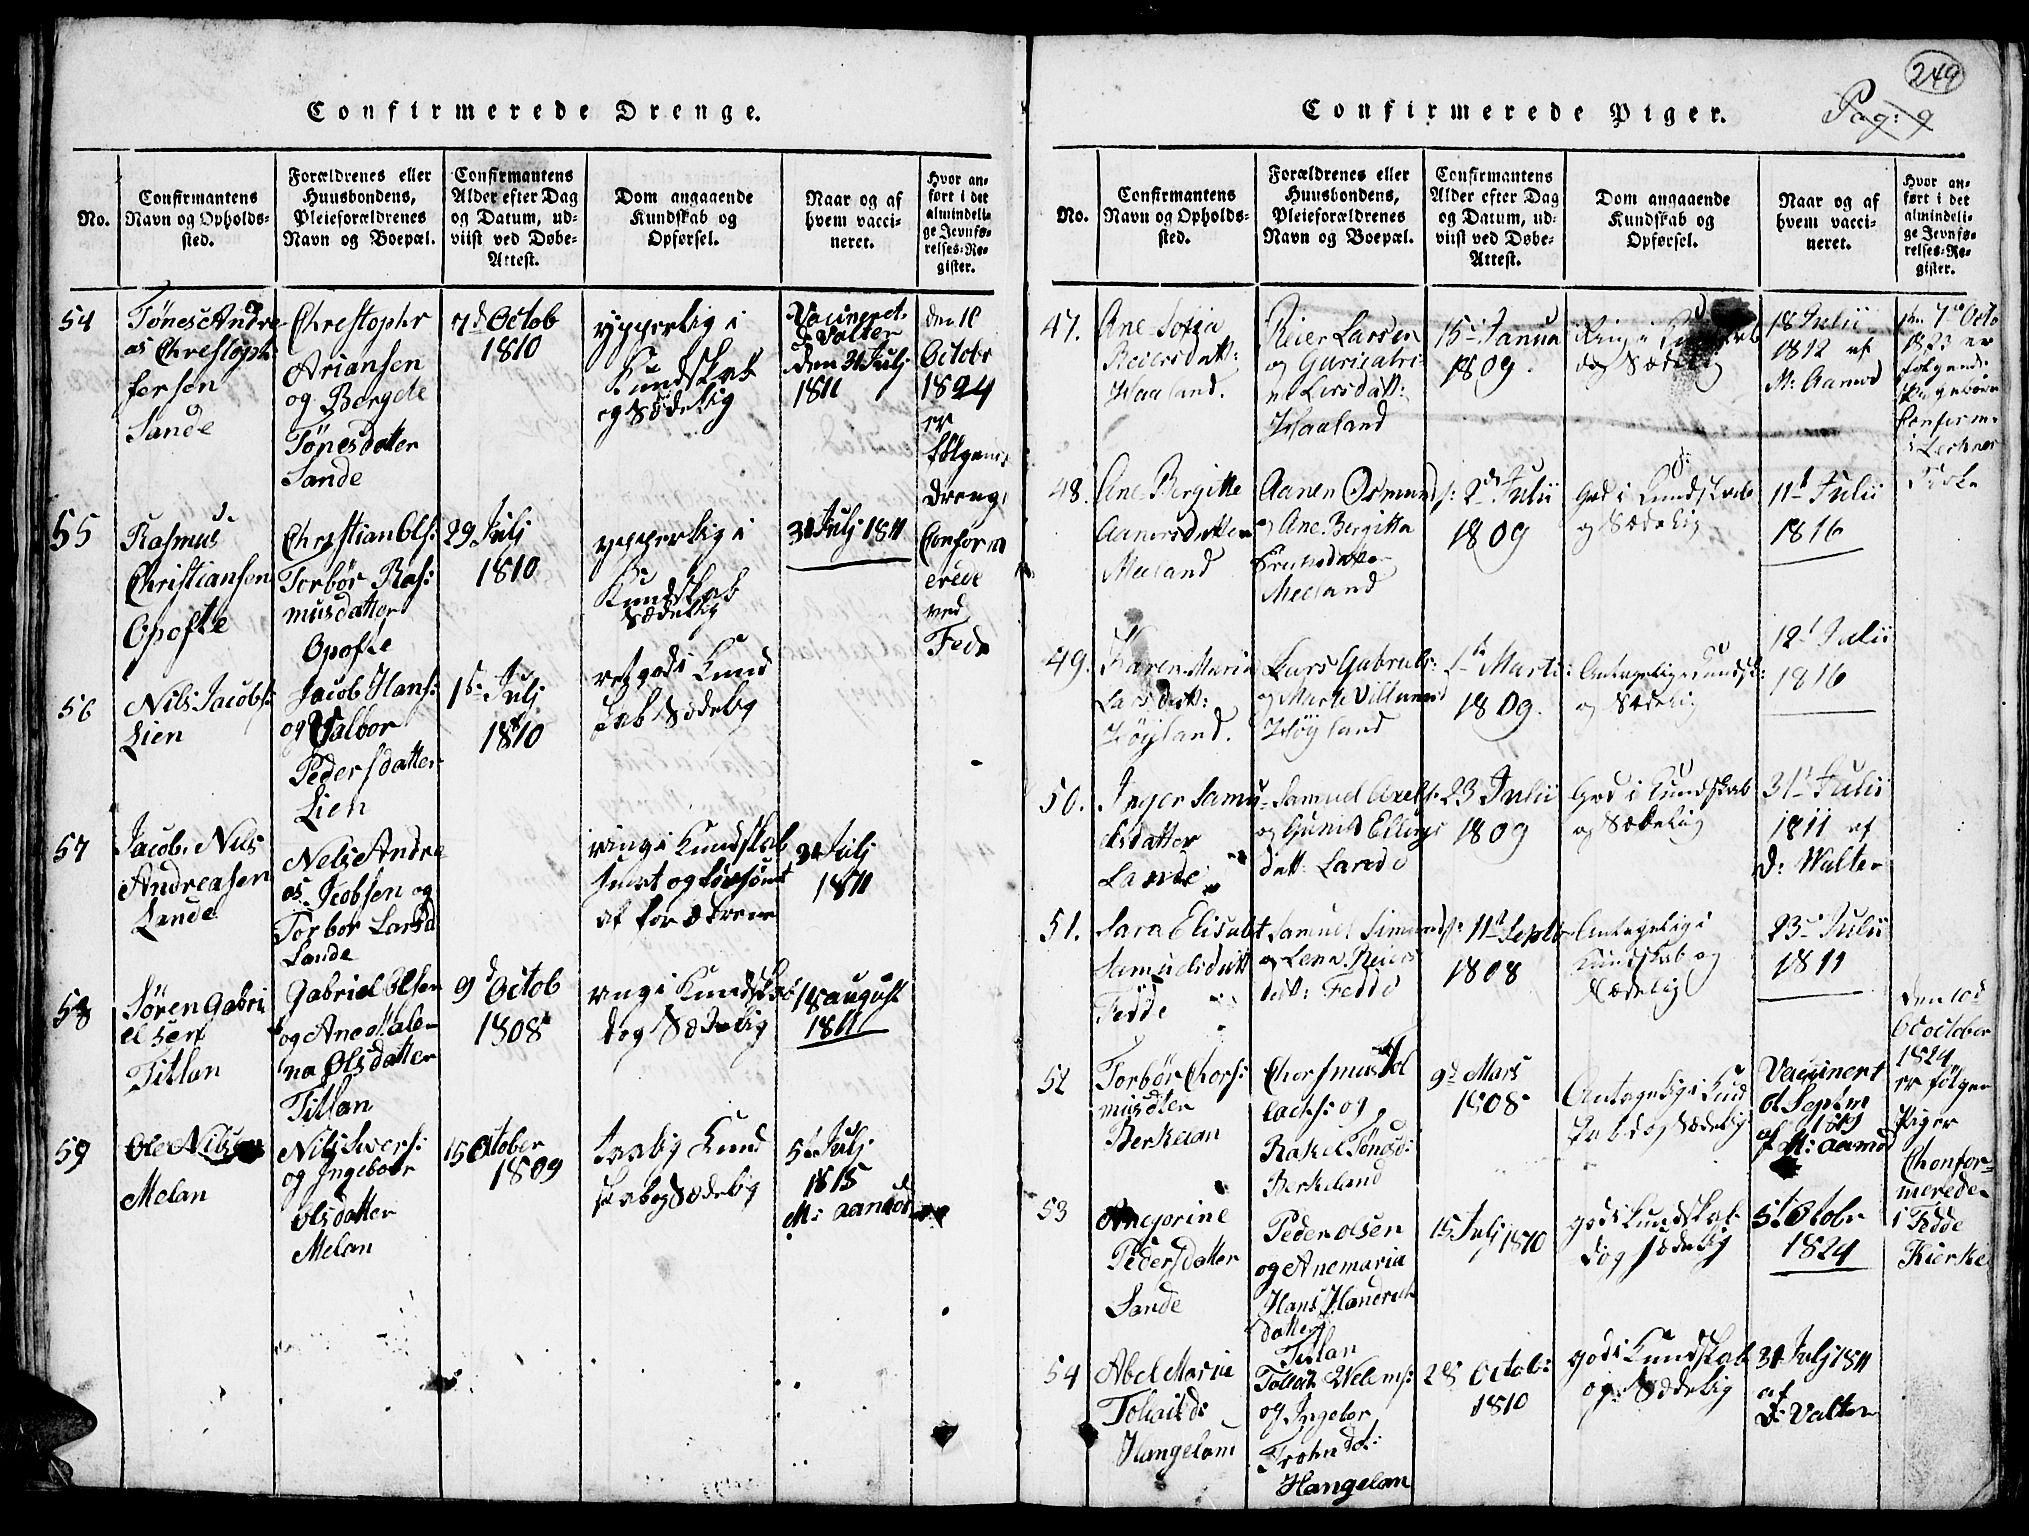 Confirmerede Drenge.
No.
Confirmantens
Navn og Opholds-
sted.
Forældrenes eller
Huusbondens,
Pleieforældrenes
Navn og Boepæl.
Confirmantens
Alder efter Dag
og Datum, ud-
viist ved Døbe-
Attest.
Dom angaaende
Kundskab og
Opførsel.
Naar og af
hvem vacci-
neret.
Hvor an-
ført i det
almindeli-
ge Jevnfø-
relses-Re-
gister.
54
Tønes Andre
as Christoph
fersen
Sande
Chrestopher
Ariansen
og Bergete
Tønesdatter
Sande
7d Octob
1810
ypperlig i
Kundskab
og Sædelig
Vacineret
D Valter
den 31 Julj
1811
den 10
Octobr
1824
er
følgend
Dreng
Conform
erede
ved
Fede
55
Rasmus
Christiansen
Opofte
Christian Ols:
Torbør Ras:
musdatter
Opofte
29 Julj
1810
ypperlig i
Kundskab
Sædelig
31 Julj 1811
56
Nils Jacobs:
Lien
Jacob Hans:
og Valbor
Pedersdatter
Lien
1s Julj
1810
ret god i Kund
skab Sædelig
57
Jacob Nils
Andreasen
Sande
Nels Andre
as Jcobsen og
Torbor Larsd
Sande
ring i Kundskab
31 Julj
1811
58
Søren Gabri
elsen
Titlan
Gabriel Olsen
og Ane Male-
na Olsdatter
Titlan
9d Octob
1808
ring i Kundskab
dog Sædelig
18 august
1811
59
Ole Nilsen
Melan
Nils Sivers:
og Ingeboer
Olsdatter
Melan
15 October
1809
taalig Kund
skab og Sædelig
5te Julj
1815
M: Aamod
249
Pag: 9
Confirmerede Piger.
No.
Confirmantens
Navn og Opholds-
sted.
Forældrenes eller
Huusbondens,
Pleieforældrenes
Navn og Boepæl.
Confirmantens
Alder efter Dag
og Datum, ud-
viist ved Døbe-
Attest.
Dom angaaende
Kundskab og
Opførsel.
Naar og af
hvem vacci-
neret.
Hvor an-
ført i det
almindeli-
ge Jevnfø-
relses-Re-
gister.
47.
Ane Sofia
Reiersdatt:
Haaland.
Reier Larsen
og Guricatri-
ne Larsdatt:
Haaland
15 Janua
1809.
Ring i Kundskab
dog Sædelig
18 Julii
1812 af
M: Aamod
den 7de Octo
1823 er
følgende
Pigebørn
Confirm:
i Kirke
48.
Ane Bergitte
Aanensdatter
Meeland
Aanen Osmunds:
og Ane Bergitta
Meeland
2de Julii
1809
God i Kundskab
og Sædelig
11t Julii
1816
49.
Karen Maria
Larsdatt:
Høyland.
Lars Gabriels:
og Marte Villumsd
Høyland
1te Marts:
1809.
Antagelig Kundsk:
og Sædelig
12t Julii
1816
50.
Inger Samu-
elsdatter
Sande
Samuel Axels:
og Gunild Ellings
datt:
23 Julii
1809
God i Kundskab
og Sædelig
31t Julii
1811 af
D: Walter
51.
Sara Elisabt
Samuelsdatt
Fedde
Samuel Simonds:
og Lena Reiers
datt: Fedde
11te Septbr
1808
Antagelig i
Kundskab og
Sædelig
23 Julii
1811
den 10d
October
1824
er følgen
Piger
Chonfor-
merede
i Fedde
Kierke
52
Torbør Thors:
musdter
Berkelan
Rakel Tønesd:
Berkeland
9d Mars
1808
Antagelig i Kund
skab dog Sædelig
Vacinert
d Septm
1819
af M: Aamod
53
Anejorine
Pedersdatter
Sande
Peder Olsen
og Anemaria
Hans Handrick
datter
Titlan
15 Julj 1810
god i Kundskab
dog sædelig
5t Otobr
1824
54
Abel Maria
Tollaksd:
Hangelam
Tollak Welems:
og Ingebor
Trohn dot:
Hangelan
28 Octob:
1810
god i Kundskab
og Sædelig
31 Julj 1811
af
D: Valter